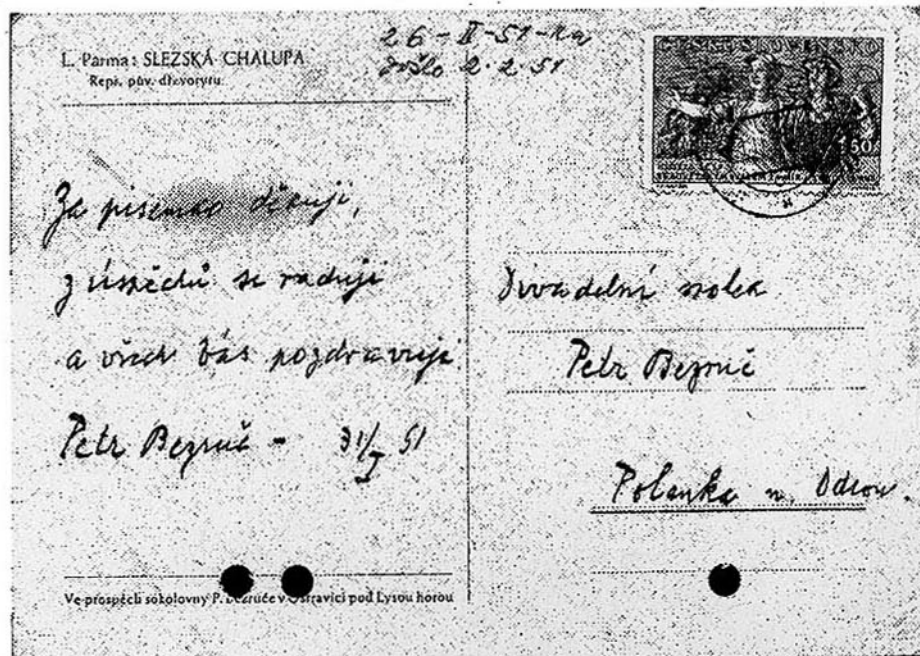 L. Parma: SLEZSKÁ CHALUPA
Repr. pův. dřevorytu
26-II-51-
došlo 2.2.51
ČESKOSLOVENSKO
1,50
Za písemko děkuji,
z úspěchů se raduji
a všech Vás pozdravuji
Petr Bezruč - 31/I 51
Divadelní spolek
Petr Bezruč
Polanka n. Odrou.
Ve prospěch sokolovny P. Bezruče v Ostravici pod Lysou horou